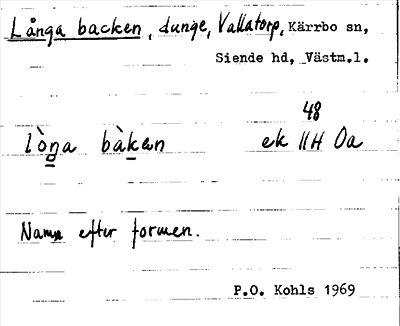 Långa backen, dunge, Vallatorp, Kärrbo sn,
Siende hd, Västm.l.
48
lòŋa bàkan ek 11H 0a
Namn efter formen.
P.O. Kohls 1969